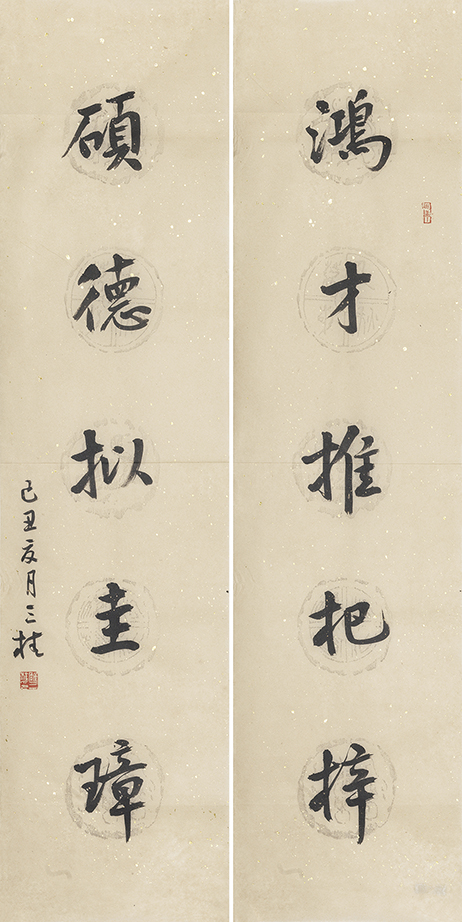 鸿才推杞梓
硕德拟圭璋
己丑夏月三桂